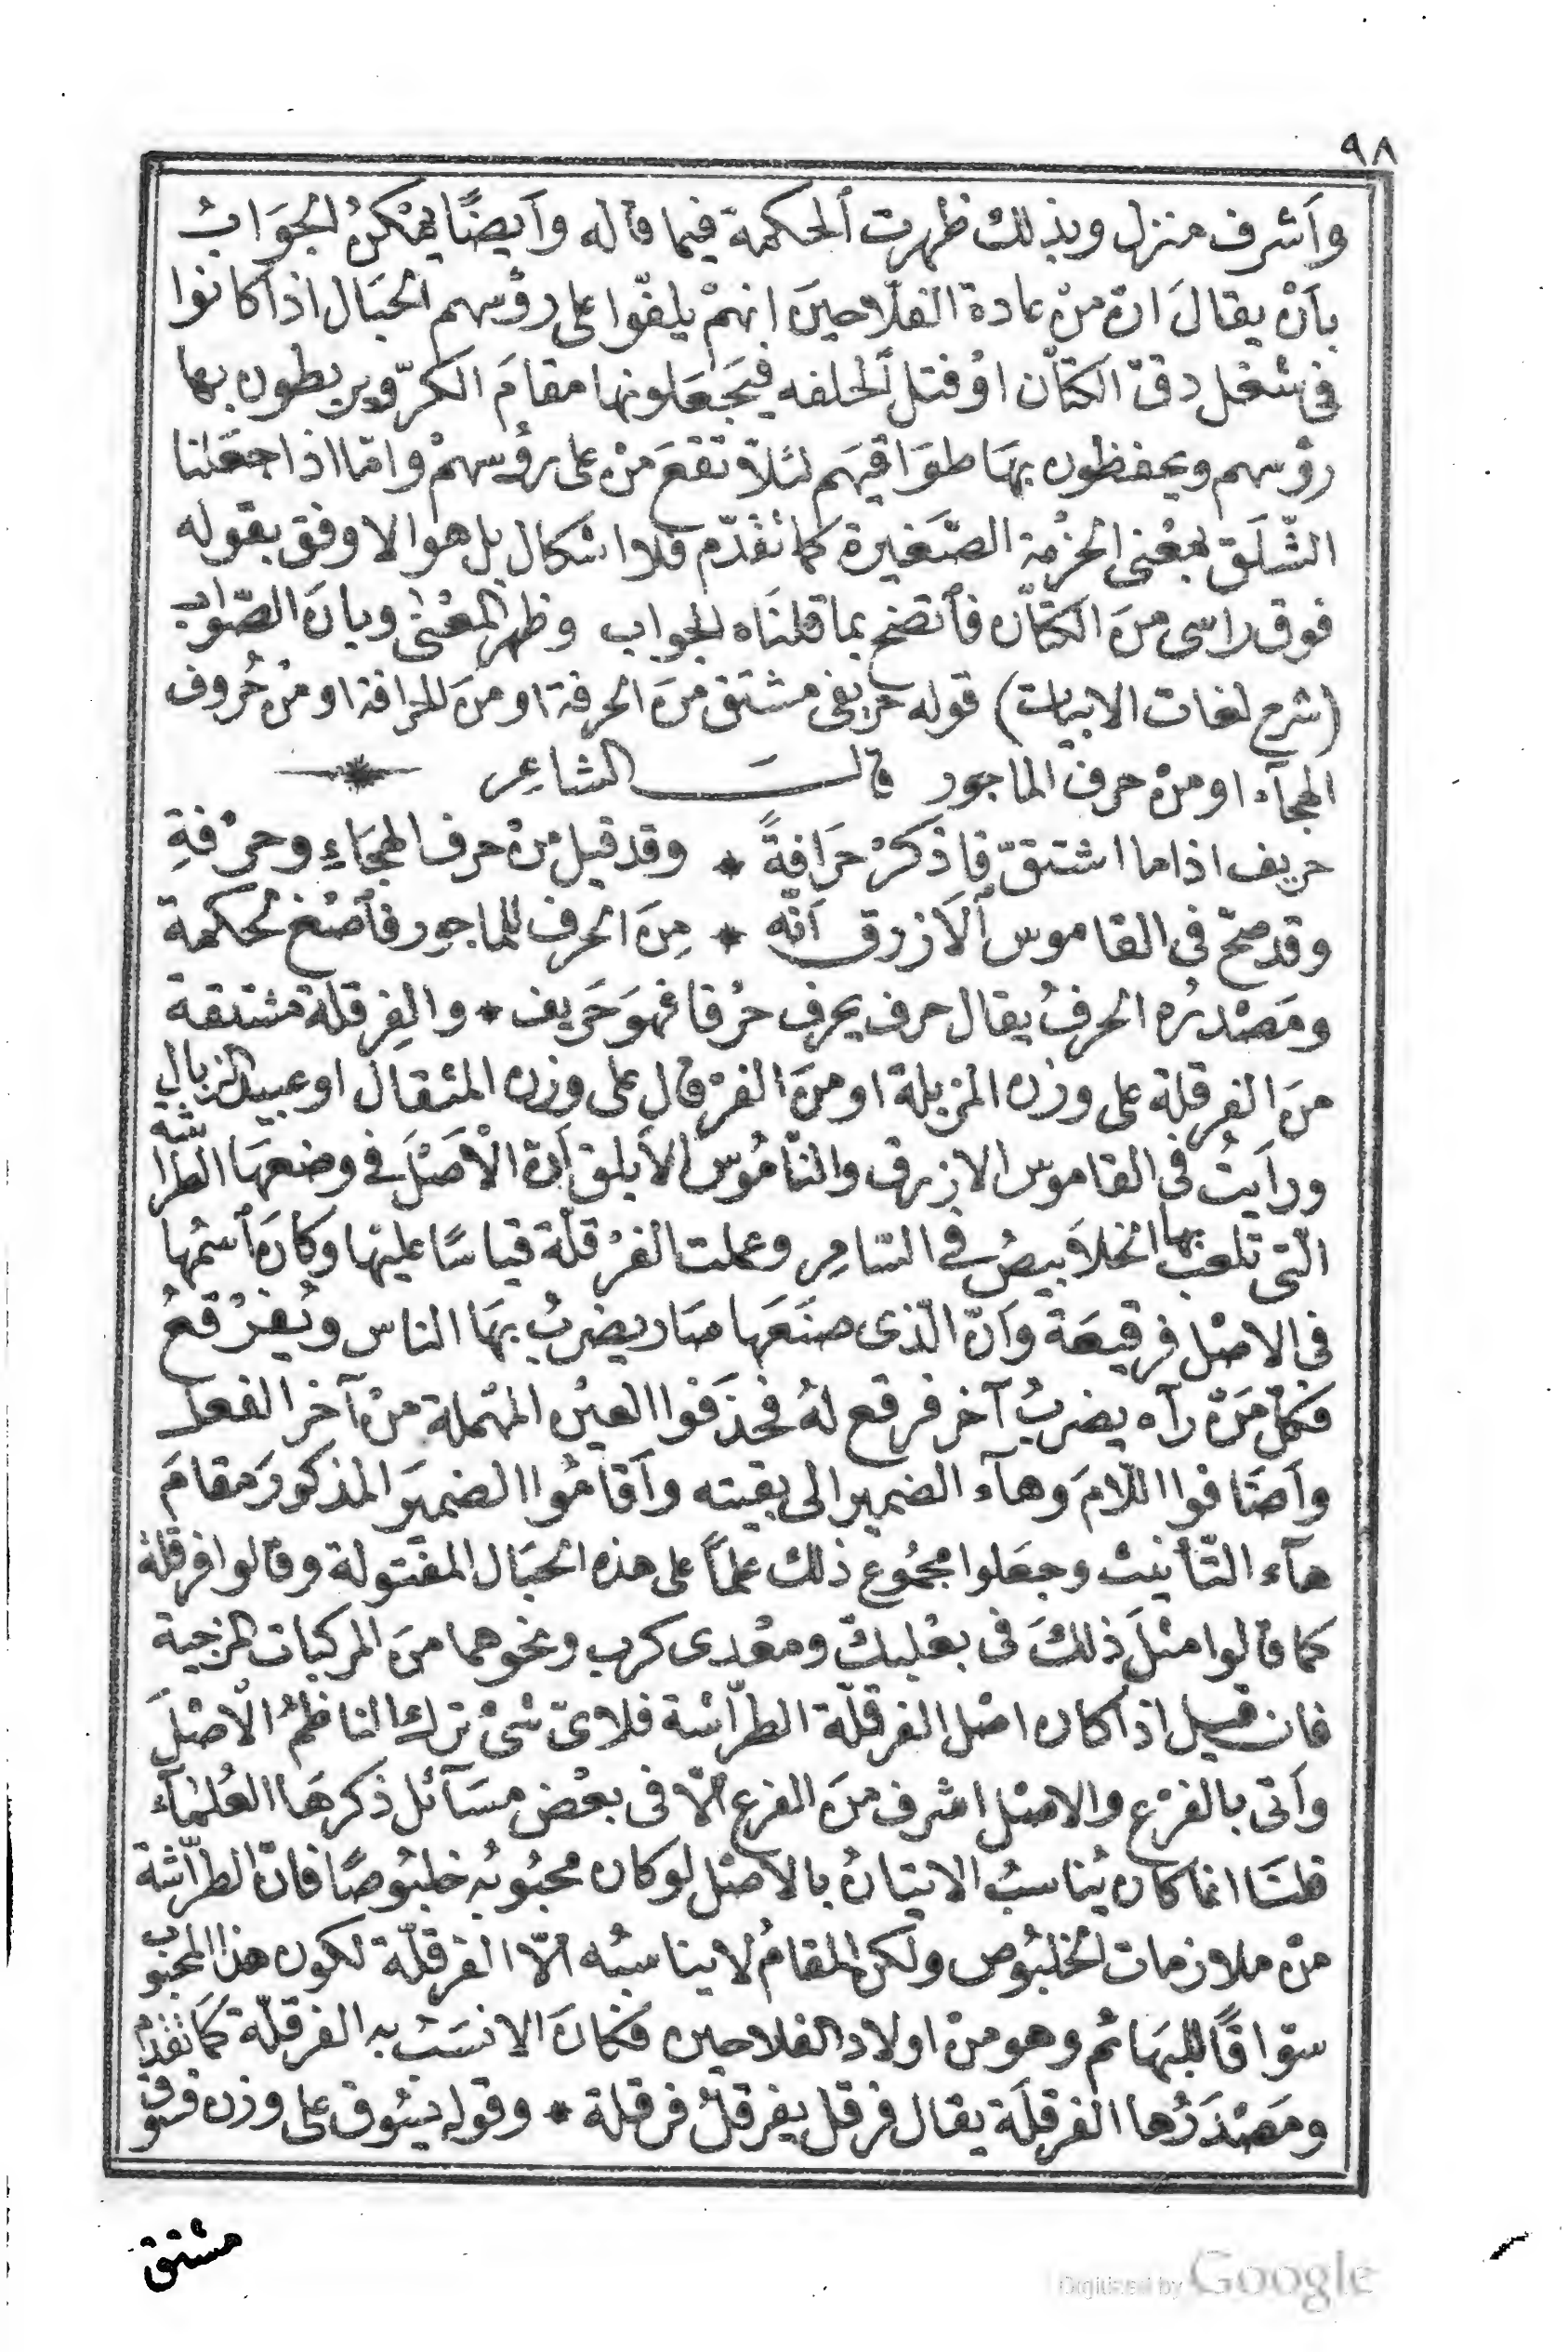 ٩٨
وأشرف منزل وبذلك ظهرت ٱلحكمة فيما قاله وأيضًا يمْكنُ الجوَابُ
بأنْ يقالَ انّ منْ عادة الفلّاحينَ انهمْ يلفّوا على رؤسهم الحبَال اذا كانوا
فى شغْل دقّ الكتّان اوْ فتل ٱلحلفه فيَجعَلونها مقامَ الكرّ ويربطون بها
رؤسهم ويحفظون بهَا طوَاقيهَم لئلاّ تقعَ منْ على رؤسهمْ وامّا اذا جعَلنا
الشّلَق بمعْنى الحزْمة الصّغيرة كما تقدّم فلا اشكال بل هو الاوفق بقوله
فوق راسى منَ الكتّان فٱتضح بما قلنَاه الجواب وظهر المعْنىٰ وبانَ الصّوَاب
(شرح لغات الابيات) قوله حريفى مشتق منَ الحرفة او منَ الحرافة او منْ حُروف
الهجآء او منْ حرف الماجور قالـــــتَ الشاعر
حريف اذا ما اشتقّ فاذكرْ حَرَافةً * وقد قيل منْ حرف الهجَاءِ وحرْفةِ
وقد صحّ فى القاموس ٱلاَزرق أنّه * مِنَ الحرف للماجور فٱصْغ لحكمة
ومَصْدرُه الحرفُ يقال حرف يحرف حرْفا فهوَ حَريف * والفِرقلة مشتقة
منَ الفرقلة على وزن المزبلة او منَ الفرْقال على وزن المثقال او عبيد الزبال
ورأيتُ فى القاموس الازرق والنّامُوس الأبلق أنّ الْأصْلَ فى وضعهَا الطرّاشة
الّتى تلعبُ بها الخلاَبيصُ فى السّامِر وعملت الفرْقلّة قياسًا عليها وكانَ ٱسْمُها
فى الاصْل فرقيعَة وأنّ الّذى صنَعَها صَار يضربُ بهَا الناس ويُفرْقعُ
فكلّ مَنْ رآه يضربُ آخر فرقع لهُ فحذَفوا العيْن المهْملة منْ آخر الفعل
وأضَافوا اللّامَ وهآء الضمير الى بقيته وأقامُوا الضميرَ المذكورَ مقامَ
هآء التّأنيث وجعَلوا مجمُوع ذلك علماً على هذه الحبَال المفتولة وقالوا فرقلّة
كما قالوا مثْلَ ذلكَ فى بعْلبكّ ومعْدى كرب ونحوهما منَ المركبات المزجية
فان قيل اذا كان اصْل الفرقلّة الطرّاشة فلاىّ شىْ ترك الناظمُ الْاصْلَ
وأتى بالفرْع والاصْل اشرف منَ الفرع الّا فى بعْض مسَآئل ذكرهَا العُلمآء
قلنَا انما كان يُناسبُ الاتيَانُ بالأصْل لو كان محبُوبُه خلبُوصًا فانّ الطرّاشة
منْ ملازمات الخلبُوص ولكن المقامُ لا يناسبُه الّا الفرقلّة لكون هذا المحبوب
سوّاقًا للبهَائم وهو منْ اولاد الفلاحين فكانَ الانسَبُ به الفرقلّة كما تقدّم
ومَصْدَرُها الفرقلَة يقال فرقل يفرقلُ فرقلة * وقوله يسُوق على وزن فسوق
مشتق
Digitized by Google